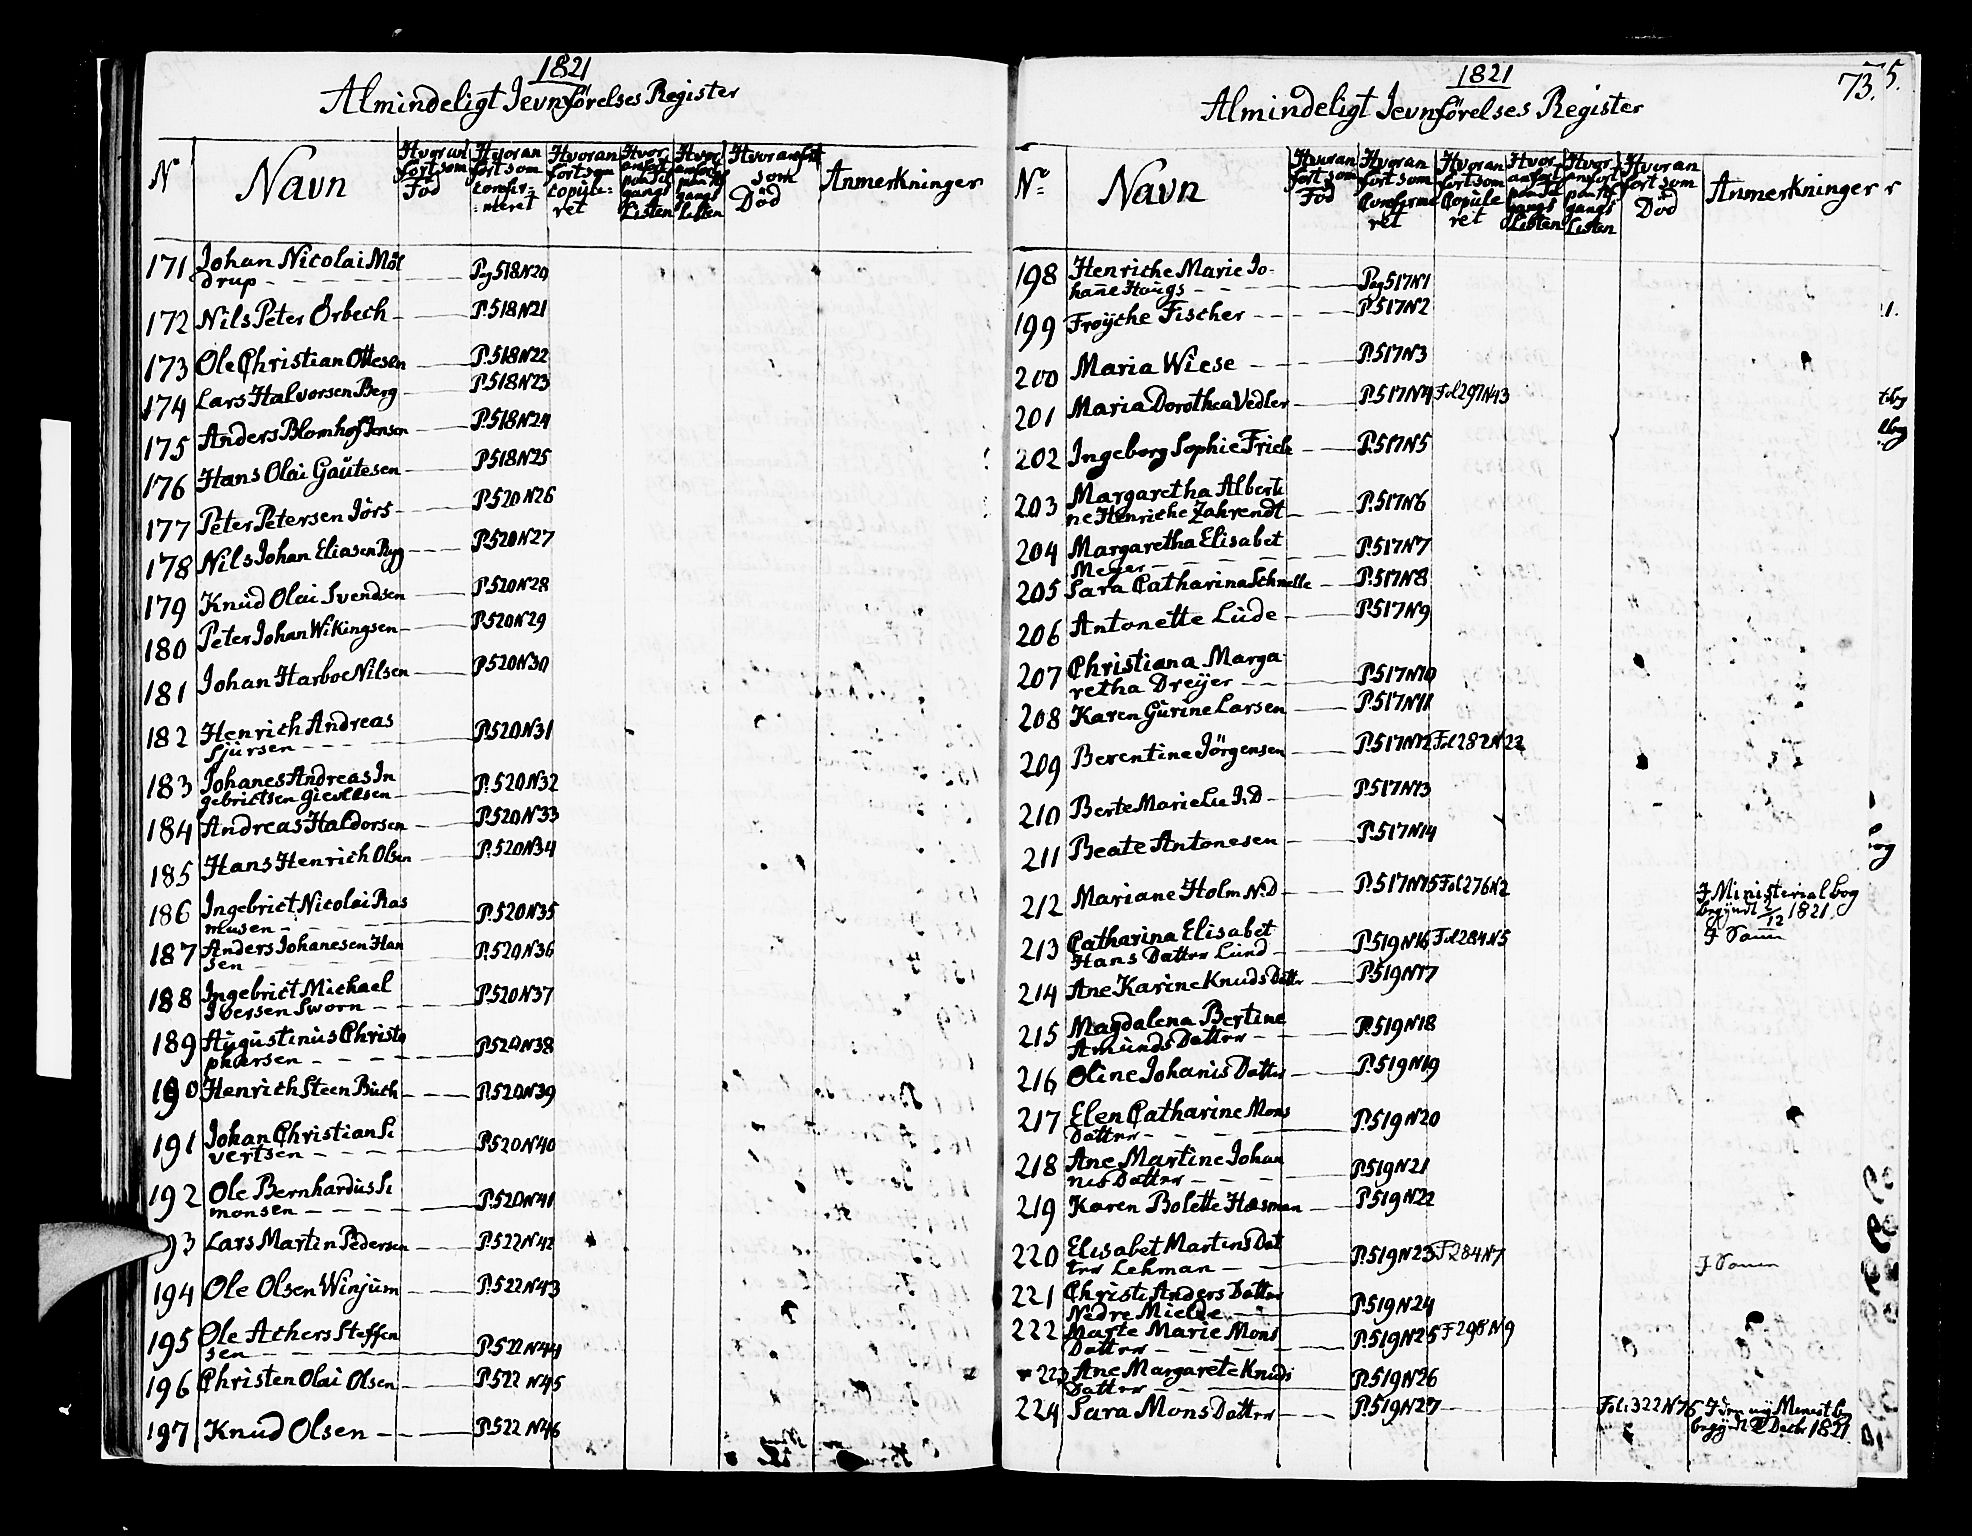 1821
Almindeligt Jevnførelses Register
N
Navn
Hvoran
ført som
Fød
Hvoran
ført som
confir=
=meret
Hvoran
ført som
copule=
ret
Hvor
anført
paa Til
gangs
Listen
Hvor
anført
paa Af
gangs
Listen
Hvor anført
som
Død
Anmerkninger
171 Johan Nicolai Möl
drup - - - - Pag 518 N20
172 Nils Peter Örbech - P.518 N21
173 Ole Christian Ottesen P.518 N22
174 Lars Halvorsen Berg - P.518 N23
175 Anders Blomhof Jensen P.518 N24
176 Hans Olai Gautesen - P518 N25
177 Peter Petersen Jörs - P.520 N26
178 Nils Johan Eliasen Rÿgg P.520 N27
179 Knud Olai Svendsen P.520 N28
180 Peter Johan Wikingsen P.520 N29
181 Johan Harboe Nilsen P.520 N30
182 Henrich Andreas
Sjursen - - - - P.520 N31
183 Johanes Andreas In
gebrictsen Gievelsen - P.520 N32
184 Andreas Haldorsen P.520 N33
185 Hans Henrich Olsen P.520 N34
186 Ingebrict Nicolai Ras
musen - - - P.520 N35
187 Anders Johanesen Han
sen - - - P.520 N36
188 Ingebrict Michael
Iversen Sworn - - P.520 N37
189 Augustinus Christo
phersen - - - P.520 N38
190 Henrich Steen Buch - P.520 N39
191 Johan Christian Si
vertsen - - - P.520 N40
192 Ole Bernhardus Si
monsen - - - P.520 N41
93 Lars Martin Pedersen P.522 N42
194 Ole Olsen Winjum - P.522 N43
195 Ole Athers Steffen
sen - - - P.522 N44
196 Christen Olai Olsen P.522 N45
197 Knud Olsen - - P.522 N46
1821
73.
5.
Almindeligt Jevnførelses Register
No
Navn
Hvoran
ført som
Fød
Hvoran
ført som
Confirme
ret
Hvoran
ført som
Copule
ret
Hvor
anført
paa Til
gangs
Listen
Hvor
anført
paa Af
gangs
Listen
Hvoran
ført som
Död
Anmerkninger
198 Henriche Marie Jo-
hanne Hougs - - Pag 517 N1
199 Froÿche Fischer - - P.517 N2
200 Maria Wiese - - P.517 N3
201 Maria Dorothea Vedler P.517 N4 Fol 297 N43
202 Ingeborg Sophie Friele P.517 N5
203 Margaretha Alberti
ne Henriche Zahrendt P.517 N6
204 Margaretha Elisabet
Meyer - - - P.517 N7
205 Sara Catharina Schnelle P.517 N8
206 Antonette Lude - P.517 N9
207 Christiana Marga-
retha Dreÿer - - P.517 N10
208 Karen Gurine Larsen P.517 N11
209 Berentine Jörgensen P.517 N12 Fol 282 N22
210 Berte Marie P.517 N13
211 Beate Antonesen P.517 N14
212 Mariane Holm N.D. P.517 N15 Fol 276 N2 J Ministerial bog
begyndt 2/12 1821.
213 Catharina Elisabet
Hans Datter Lund - P.519 N16 Fol 284 N5 J Samme
214 Ane Karine Knuds Datter P.519 N17
215 Magdalena Bertine
Amunds Datter - P.519 N18
216 Oline Johanis Datter P.519 N19
217 Elen Catharine Mons
Datter - - - P.519 N20
218 Ane Martine Johan
nis Datter - - - P.519 N21
219 Karen Bolette Hasman P.519 N22
220 Elisabet Martens Dat
ter Lehman - - P.519 N23 F 284 N7 J Samme
221 Christi Anders Datter
Nedre Mielde - P.519 N24
222 Marte Marie Mons
Datter - - - P.519 N25 F 298 N9
223 Ane Margarete Knuds
Datter - - - P.519 N26
224 Sara Mons Datter - P.519 N27 Fol: 322 N76 J den nÿ Minist b
begÿndt 2 Decbr 1821.